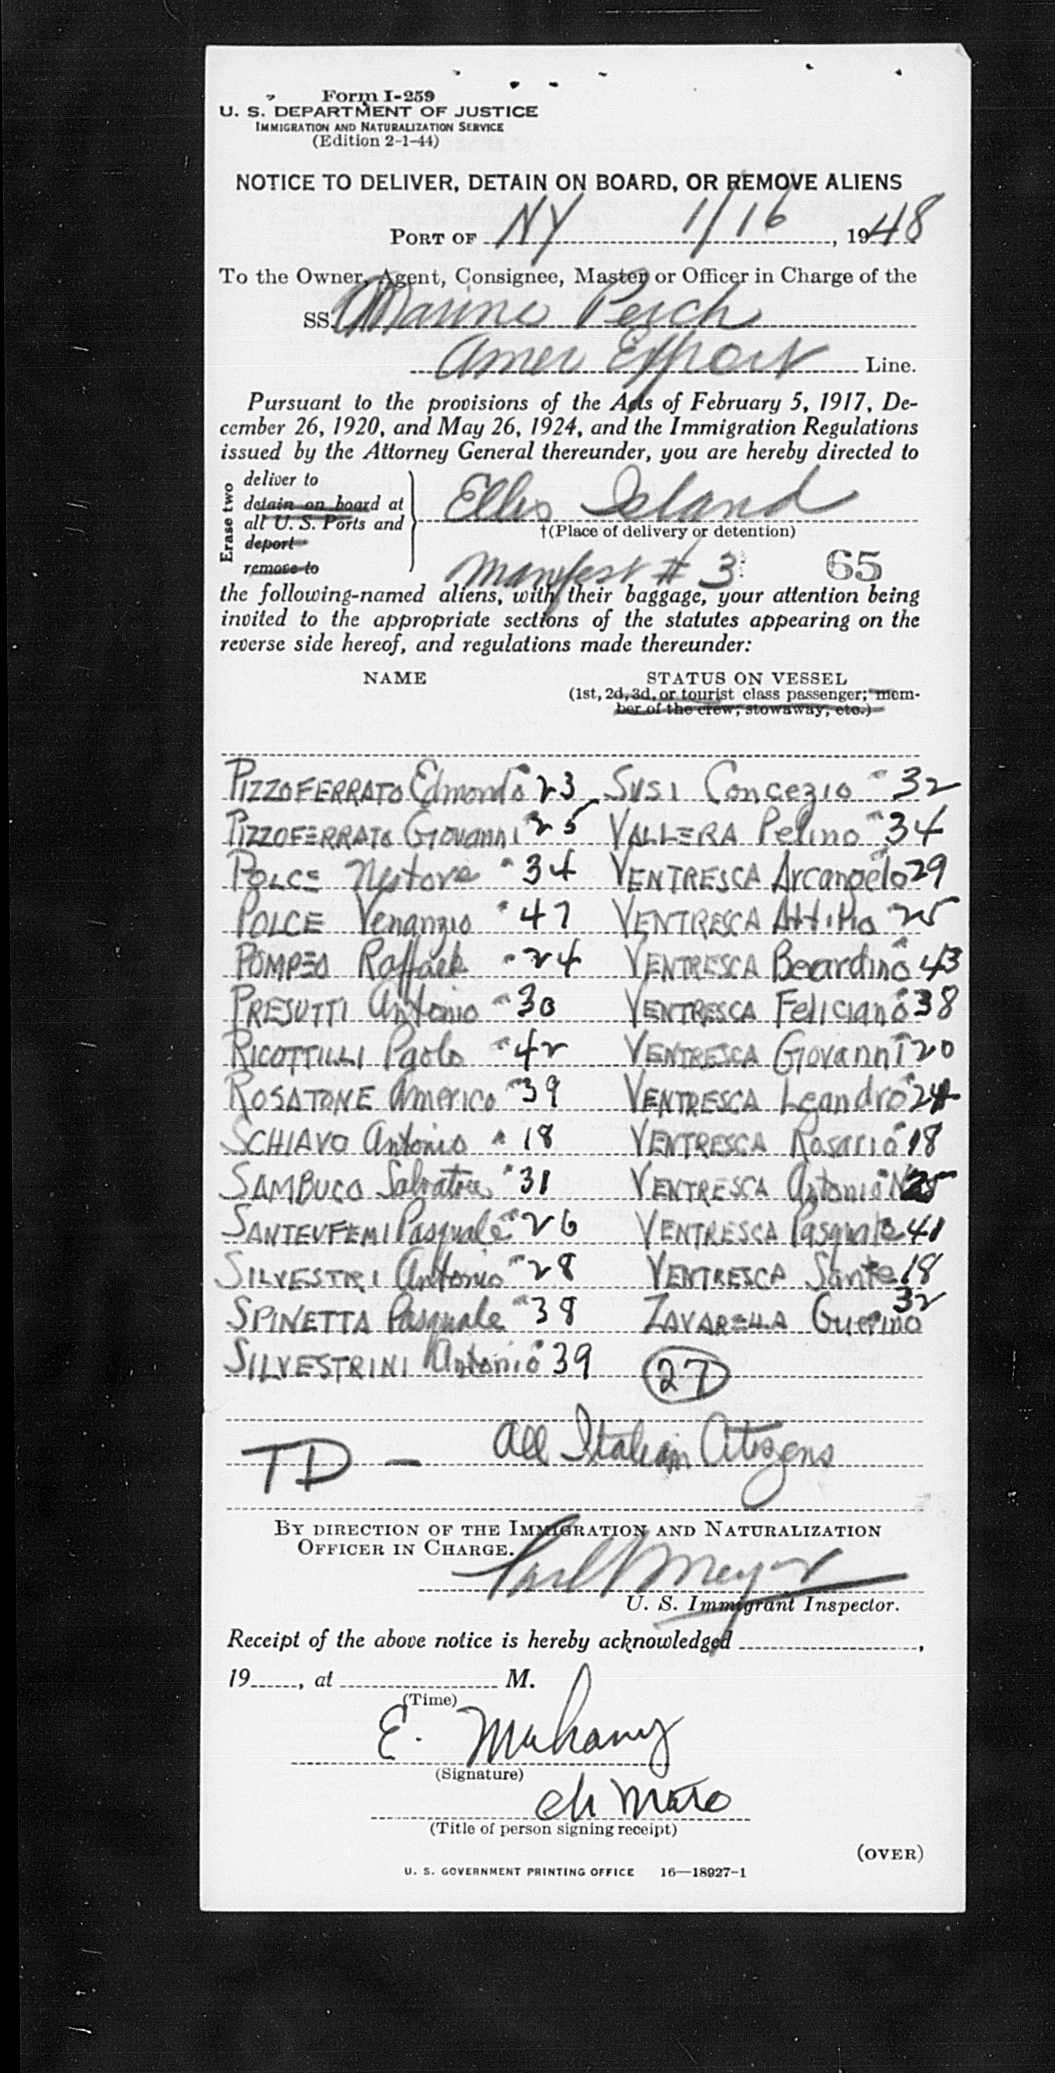 Form I-259
U. S. DEPARTMENT OF JUSTICE
IMMIGRATION AND NATURALIZATION SERVICE
(Edition 2-1-44)
NOTICE TO DELIVER, DETAIN ON BOARD, OR REMOVE ALIENS
PORT OF NY 1/16, 1948
To the Owner, Agent, Consignee, Master or Officer in Charge of the
SS. Marine Perch
Amer Export Line.
Pursuant to the provisions of the Acts of February 5, 1917, De-
cember 26, 1920, and May 26, 1924, and the Immigration Regulations
issued by the Attorney General thereunder, you are hereby directed to
Erase two
deliver to
detain on board at
all U. S. Ports and
deport
remove to
Ellis Island
†(Place of delivery or detention)
Manifest # 3 65
the following-named aliens, with their baggage, your attention being
invited to the appropriate sections of the statutes appearing on the
reverse side hereof, and regulations made thereunder:
NAME STATUS ON VESSEL
(1st, 2d, 3d, or tourist class passenger; mem-
ber of the crew; stowaway, etc.)
PIZZOFERRATO Edmondo 23 SUSI Concezio " 32
PIZZOFERRATO GIOVANNI 25 VALLERA Pelino " 34
POLCE Nestore " 34 VENTRESCA Arcangelo 29
POLCE Venanzio " 47 VENTRESCA Attilio " 25
POMPEO Raffaele " 24 VENTRESCA Berardino 43
PRESUTTI Antonio " 30 VENTRESCA Feliciano 38
RICOTTILLI Paolo " 42 VENTRESCA Giovanni 20
ROSATONE Americo " 39 VENTRESCA Leandro 24
SCHIAVO Antonio " 18 VENTRESCA Rosario " 18
SAMBUCO Salvatore " 31 VENTRESCA Antonio N 25
SANTEUFEMI Pasquale " 26 VENTRESCA Pasquale 41
SILVESTRI Antonio " 28 VENTRESCA Sante 18
SPINETTA Pasquale " 38 ZAVARELLA Guerino 32
SILVESTRINI Antonio " 39 27
TD - All Italian Citizens
BY DIRECTION OF THE IMMIGRATION AND NATURALIZATION
OFFICER IN CHARGE.
U. S. Immigrant Inspector.
Receipt of the above notice is hereby acknowledged ,
19 , at M.
(Time)
E. Mahany
(Signature)
ch mate
(Title of person signing receipt)
(OVER)
U. S. GOVERNMENT PRINTING OFFICE 16—18927-1